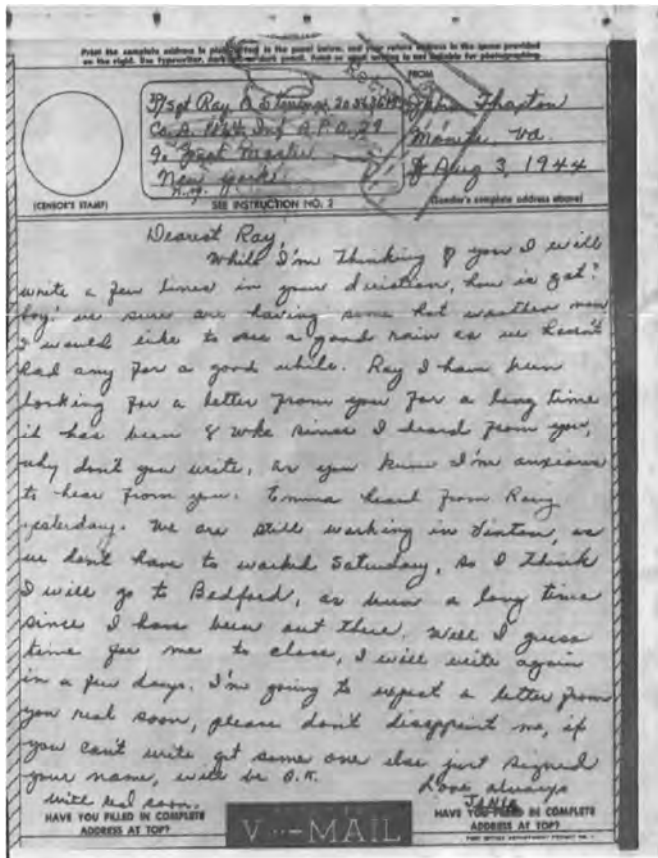 Print the complete address in plain letters in the panel below, and your return address in the space provided
on the right. Use typewriter, dark ink, or dark pencil. Faint or small writing is not suitable for photographing.
FROM
T/Sgt Ray O. Stevens
Co. A. 116th Inf A.P.O. 29
℅ Post Master
New York
N.Y.
Thaxton
Va.
Aug 3, 1944
(CENSOR'S STAMP)
SEE INSTRUCTION NO. 2
(Sender's complete address above)
Dearest Ray,
While I'm thinking of you I will
write a few lines in your direction, how is that?
boy! we sure are having some hot weather now
I would like to see a good rain as we haven't
had any for a good while. Ray I have been
looking for a letter from you for a long time
it has been 8 wks since I heard from you,
why don't you write, as you know I'm anxious
to hear from you. Emma heard from Ray
yesterday. We are still working in Vinton, as
we don't have to worked Saturday, so I think
I will go to Bedford, as been a long time
since I have been out there. Well I guess
time for me to close, I will write again
in a few days. I'm going to expect a letter from
you real soon, please don't disappoint me, if
you can't write get some one else just signed
your name, will be O.K.
Love always
write real soon.
JANIE
HAVE YOU FILLED IN COMPLETE
ADDRESS AT TOP?
V···-MAIL
HAVE YOU FILLED IN COMPLETE
ADDRESS AT TOP?